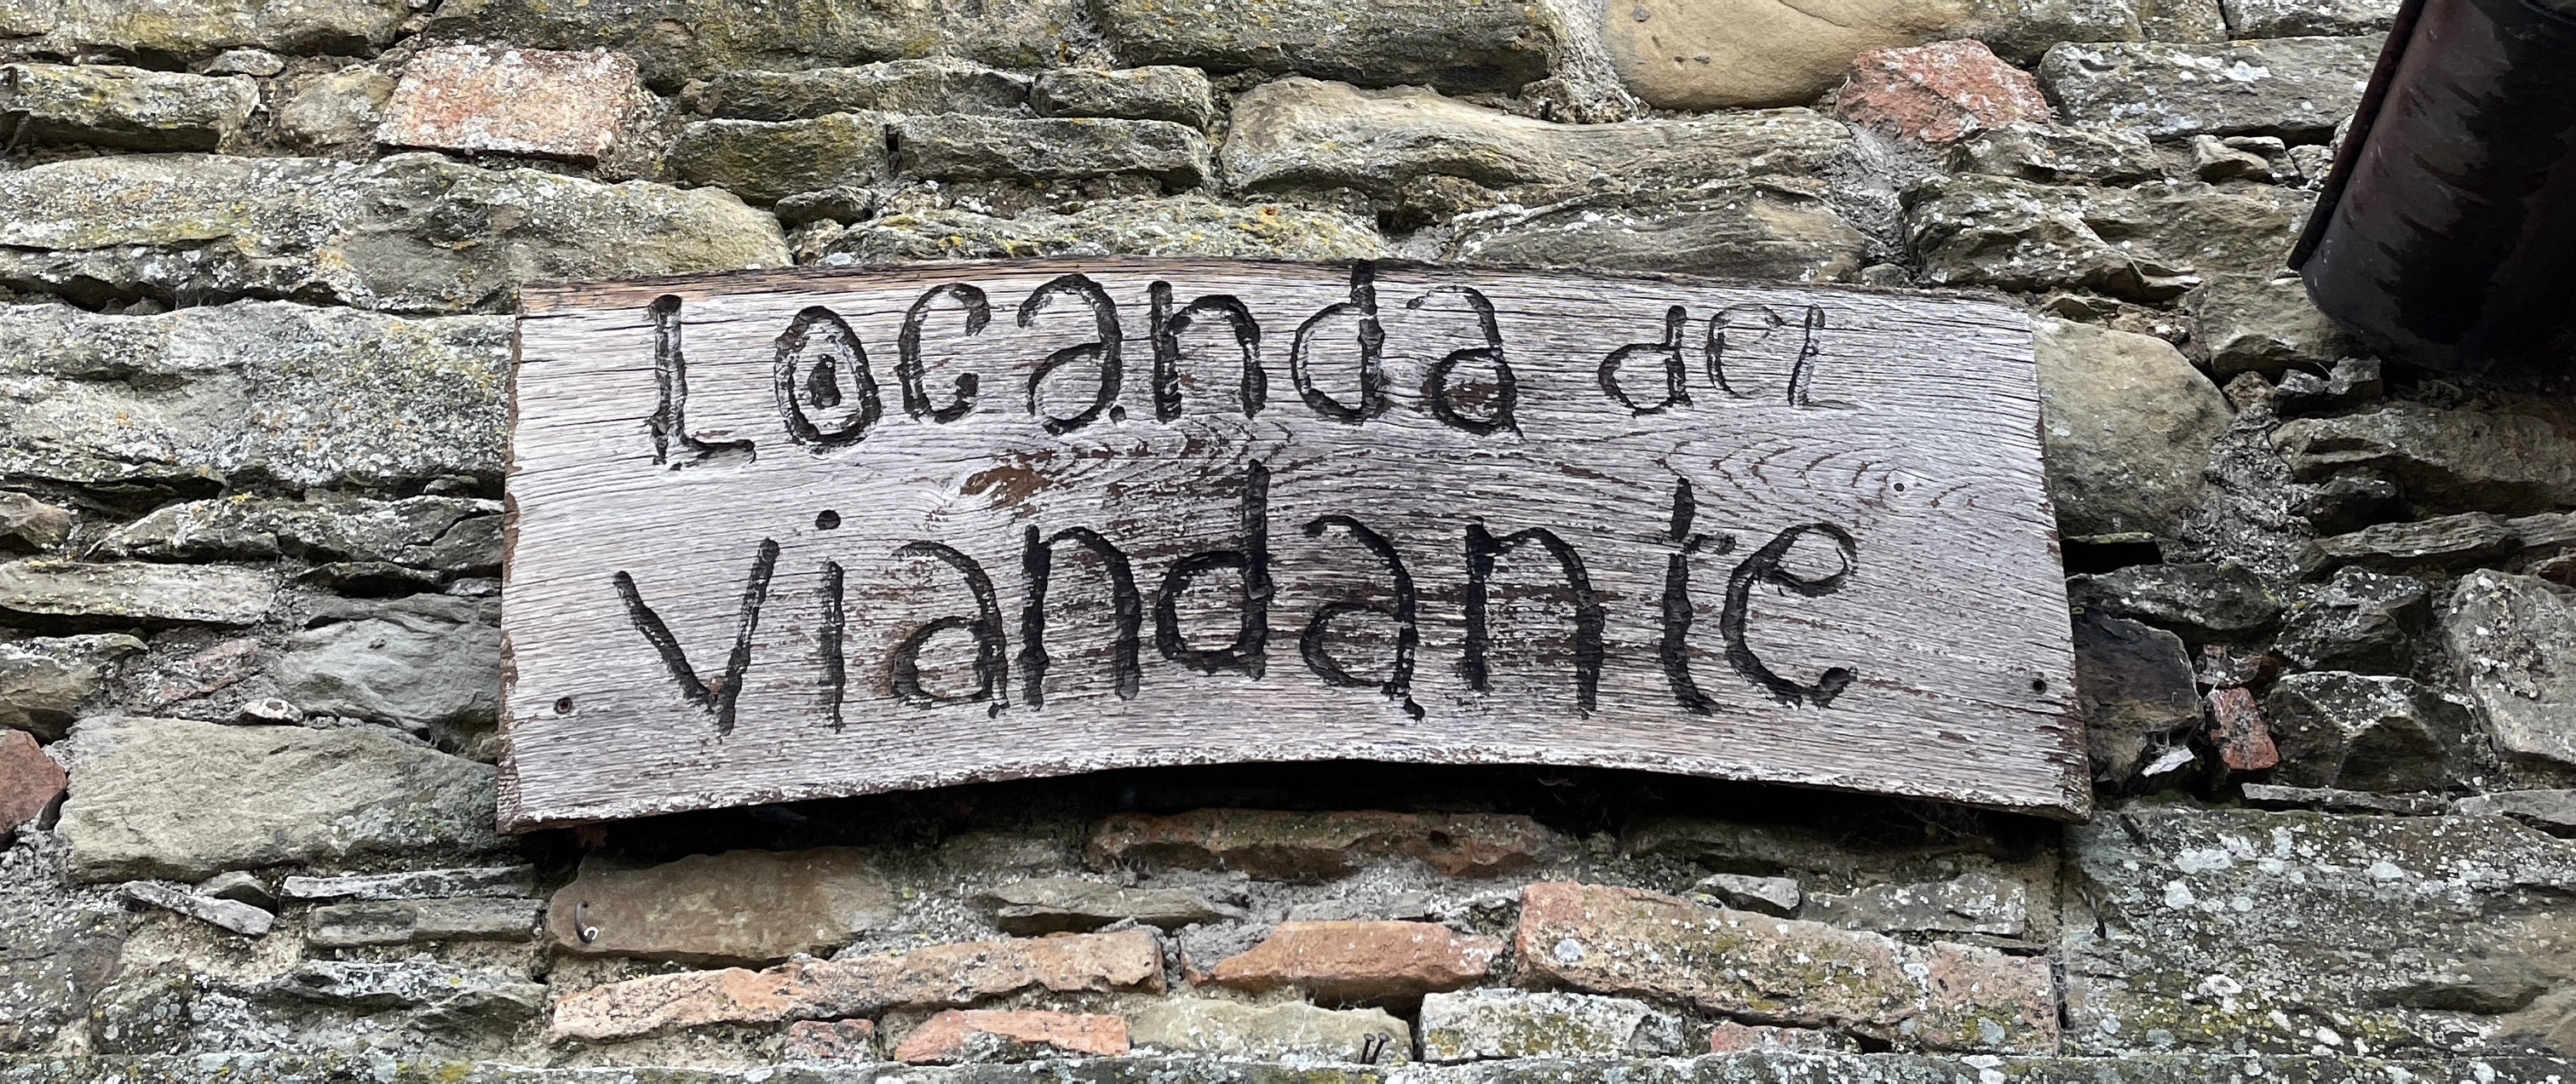 Locanda del
Viandante